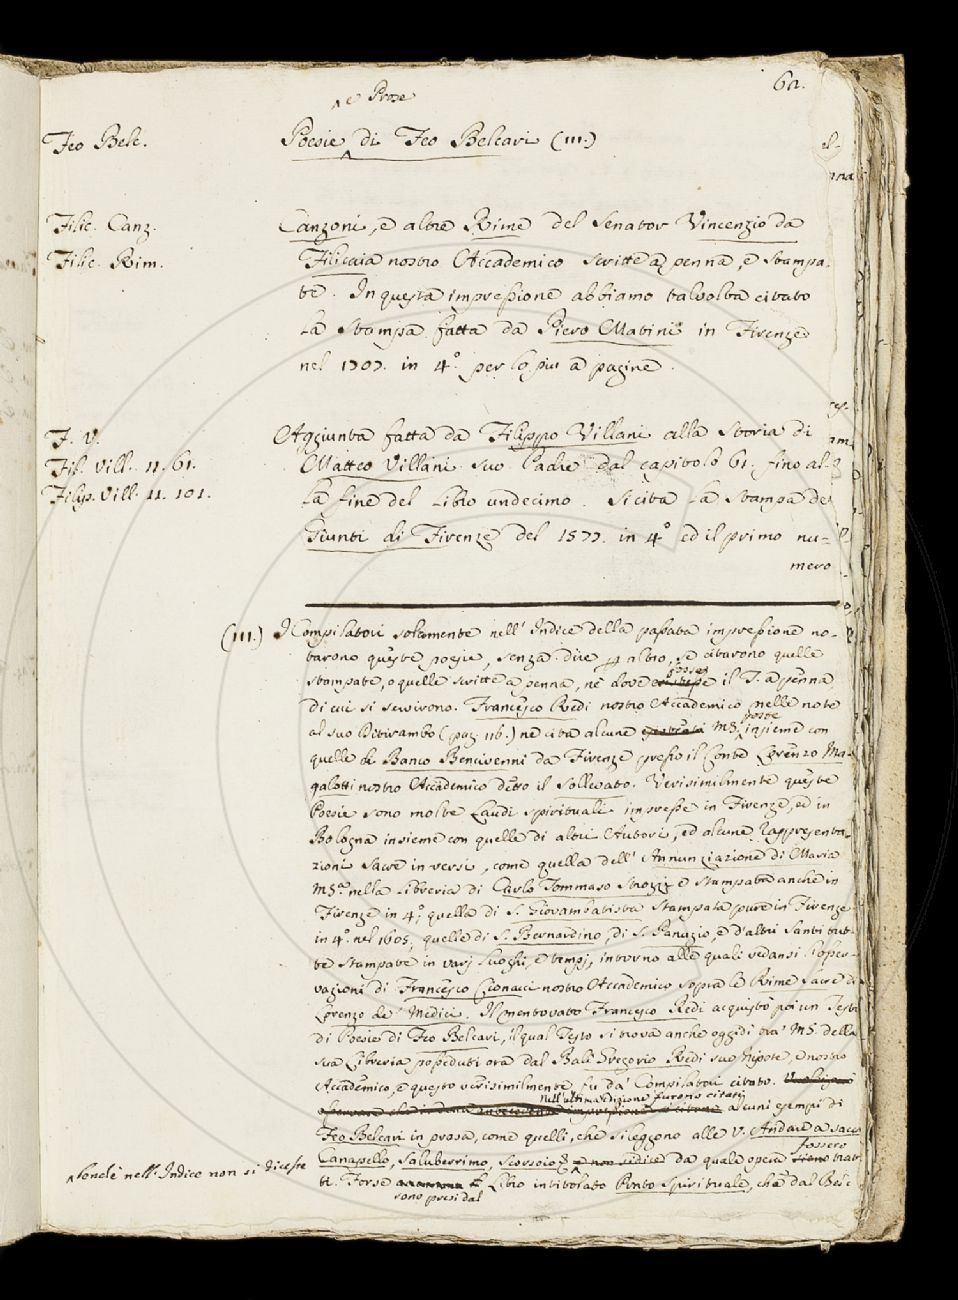 62.
e Prose
Feo Belc. Poesie di Feo Belcari (111.)
Filic. Canz. Canzoni, e altre Rime del Senator Vincenzio da
Filic. Rim. Filicaia nostro Accademico scritte a penna, e stampa-
te. In questa impressione abbiamo talvolta citato
la stampa fatta da Piero Matini in Firenze
nel 1707. in 4.º per lo più a pagine.
F. V. Aggiunta fatta da Filippo Villani alla Storia di
Fil. Vill. 11. 61. Matteo Villani suo Padre dal capitolo 61. fino al-
Filip. Vill. 11. 101. la fine del Libro undecimo. Si cita la stampa de
Giunti di Firenze del 1577. in 4.º ed il primo nu-
mero
(111.) I Compilatori solamente nell' Indice della passata impressione no-
tarono queste poesie, senza dire altro, se citarono quelle
stampate, o quelle scritte a penna, nè dove fosse il T. a penna,
di cui si servirono. Francesco Redi nostro Accademico nelle note
al suo Ditirambo (pag. 116.) ne cita alcune MS. poste insieme con
quelle di Banco Bencivenni da Firenze presso il Conte Lorenzo Ma-
galotti nostro Accademico detto il Sollevato. Verisimilmente queste
Poesie sono molte Laudi spirituali impresse in Firenze, ed in
Bologna insieme con quelle di altri Autori, ed alcune Rappresenta-
zioni Sacre in versi, come quella dell' Annunziazione di Maria
MS. nella Libreria di Carlo Tommaso Strozzi e stampata anche in
Firenze in 4.º, quella di S. Giovambatista stampata pure in Firenze
in 4.º nel 1605, quelle di S. Bernardino, di S. Panuzio, e d'altri Santi tut-
te stampate in varj luoghi, e tempi, intorno alle quali vedansi l'osser-
vazioni di Francesco Cionacci nostro Accademico sopra le Rime Sacre di
Lorenzo de' Medici. Il mentovato Francesco Redi acquistò poi un Testo
di Poesie di Feo Belcari, il qual Testo si trova anche oggidì tra' MS. della
sua Libreria posseduti ora dal Balì Gregorio Redi suo Nipote, e nostro
Accademico, e questo verisimilmente fu da' Compilatori citato.
Nell'ultima edizione furono citati alcuni esempi di
Feo Belcari in prosa, come quelli, che si leggono alle V. Andare a sacco
Canapello, Saluberrimo, Scorsoio, da quale opera fossero trat-
benchè nell' Indice non si dicesse
ti. Forse furono presi dal Libro intitolato Prato Spirituale, che dal Belc